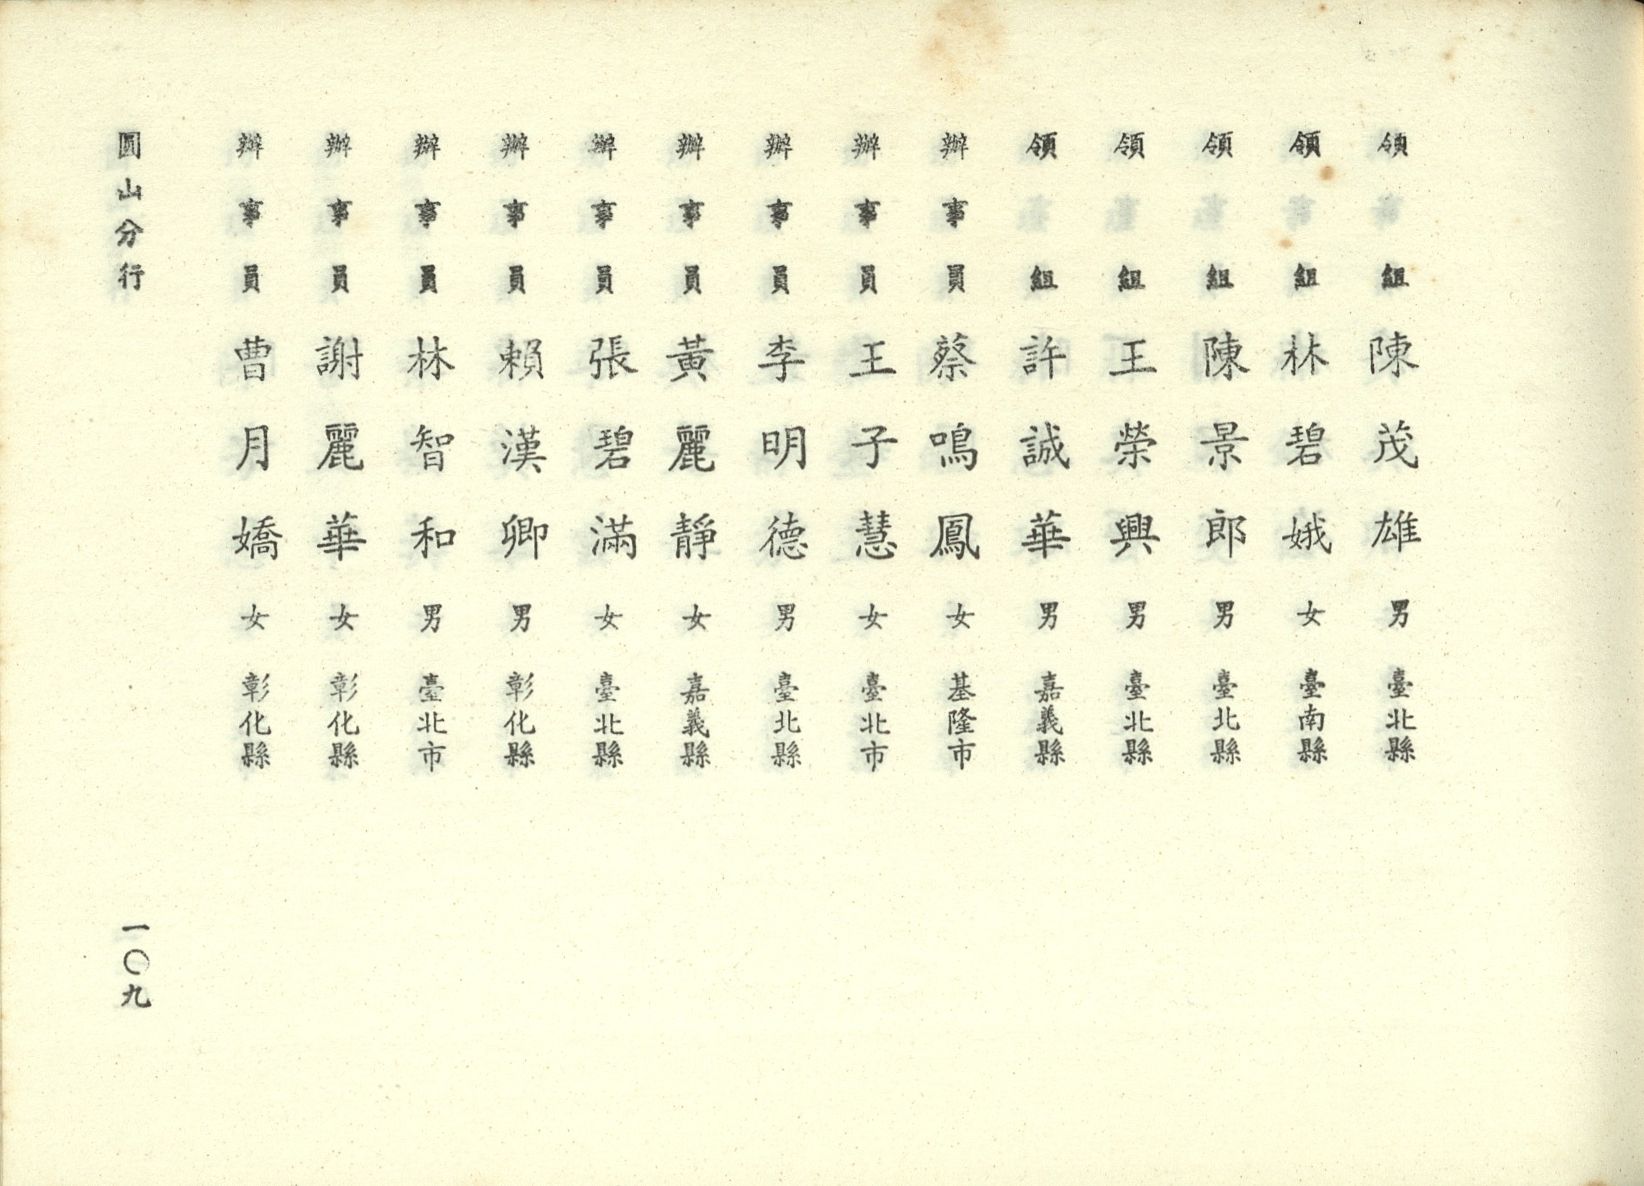 領組陳茂雄男臺北縣
領組林碧娥女臺南縣
領組陳景郎男臺北縣
領組王榮興男臺北縣
領組許誠華男嘉義縣
辦事員蔡鳴鳳女基隆市
辦事員王子慧女臺北市
辦事員李明德男臺北縣
辦事員黃麗靜女嘉義縣
辦事員張碧滿女臺北縣
辦事員賴漢卿男彰化縣
辦事員林智和男臺北市
辦事員謝麗華女彰化縣
辦事員曹月嬌女彰化縣
圓山分行
一〇九